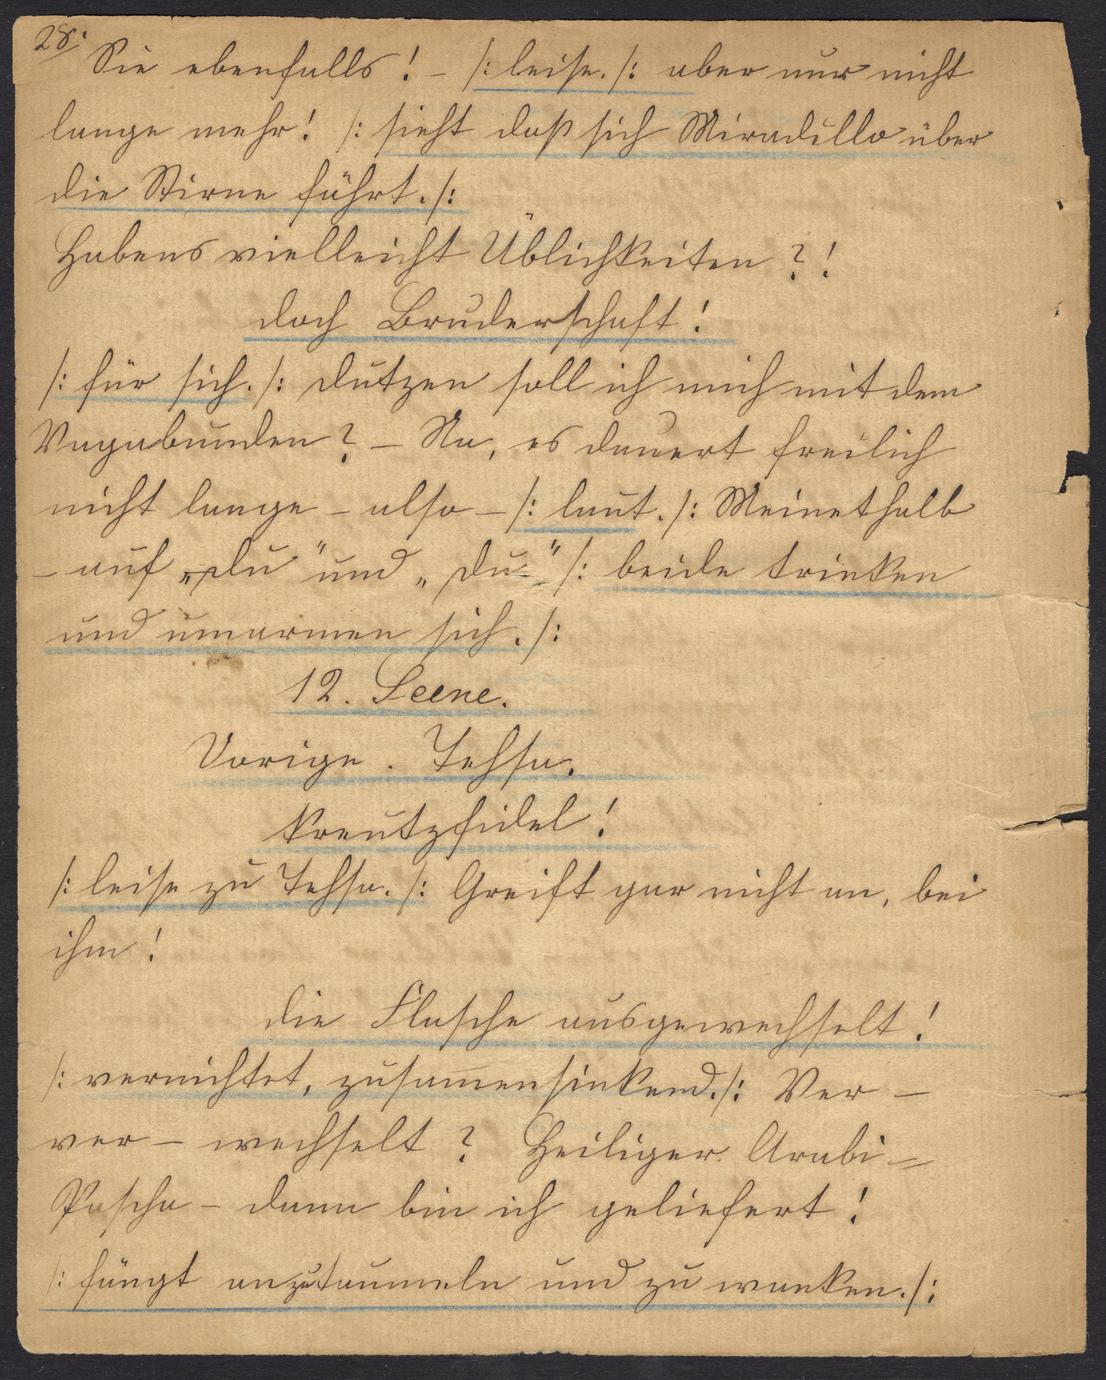 28.
Sie ebenfalls! – /: leise. /: aber nur nicht
lange mehr! /: sieht daß sich Miradillo über
die Stirne führt. /:
Habens vielleicht Üblichkeiten?!
doch Bruderschaft!
/: für sich. /: Dutzen soll ich mich mit dem
Vagabunden? – Na, es dauert freilich
nicht lange – also – /: laut. /: Meinethalb
– auf „du" und „du" /: beide trinken
und umarmen sich. /:
12. Scene.
Vorige. Tehsa.
kreutzfidel!
/: leise zu Tehsa. /: Greift gar nicht an, bei
ihm!
die Flasche ausgewechselt!
/: vernichtet, zusammensinkend. /: Ver –
ver – wechselt? Heiliger Arabi –
Pascha – dann bin ich geliefert!
/: fängt an zu taumeln und zu wanken. /: